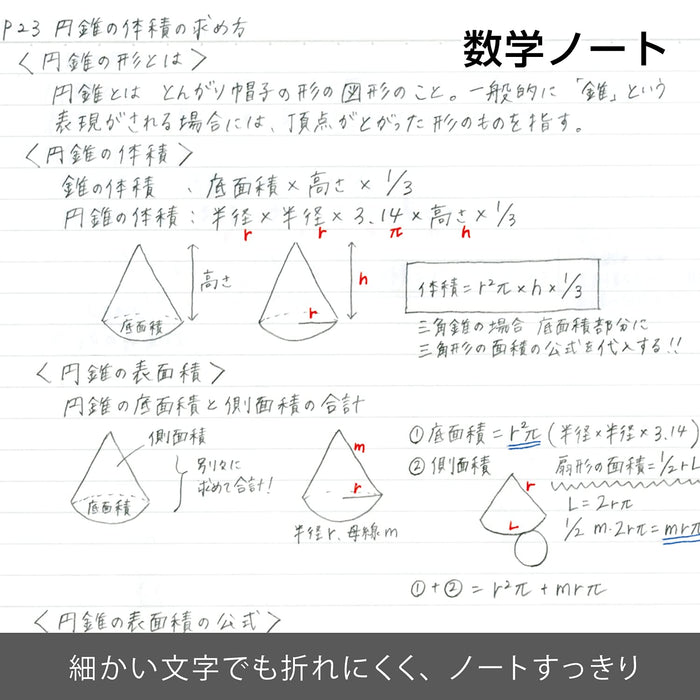 数学ノート
P23 円錐の体積の求め方
〈円錐の形とは〉
円錐とは とんがり帽子の形の図形のこと。一般的に「錐」という
表現がされる場合には、頂点がとがった形のものを指す。
〈円錐の体積〉
錐の体積 、底面積×高さ×1/3
円錐の体積:半径×半径×3.14×高さ×1/3
r r π h
高さ
底面積
h
r
体積=r²π×h×1/3
三角錐の場合 底面積部分に
三角形の面積の公式を代入する!!
〈円錐の表面積〉
円錐の底面積と側面積の合計
側面積
底面積
別々に
求めて合計!
m
r
半径r、母線m
①底面積=r²π(半径×半径×3.14)
②側面積 扇形の面積=1/2rL
r
L
L=2rπ
1/2 m・2rπ=mrπ
①+②=r²π+mrπ
〈円錐の表面積の公式〉
細かい文字でも折れにくく、ノートすっきり